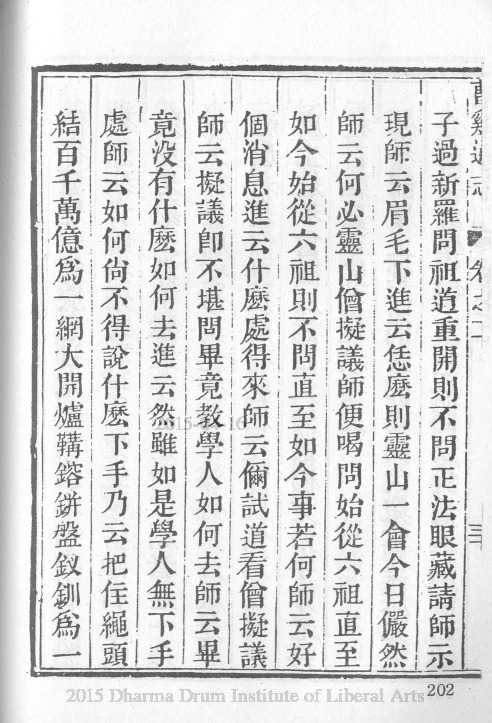 曹溪通志 卷之二 三十
子過新羅問祖道重開則不問正法眼藏請師示
現師云眉毛下進云恁麼則靈山一會今日儼然
師云何必靈山僧擬議師便喝問始從六祖直至
如今始從六祖則不問直至如今事若何師云好
個消息進云什麼處得來師云儞試道看僧擬議
師云擬議卽不堪問畢竟教學人如何去師云畢
竟没有什麼如何去進云然雖如是學人無下手
處師云如何尙不得說什麼下手乃云把住繩頭
結百千萬億爲一綱大開爐鞴鎔鉼盤釵釧爲一
2015-03-16
2015 Dharma Drum Institute of Liberal Arts
202